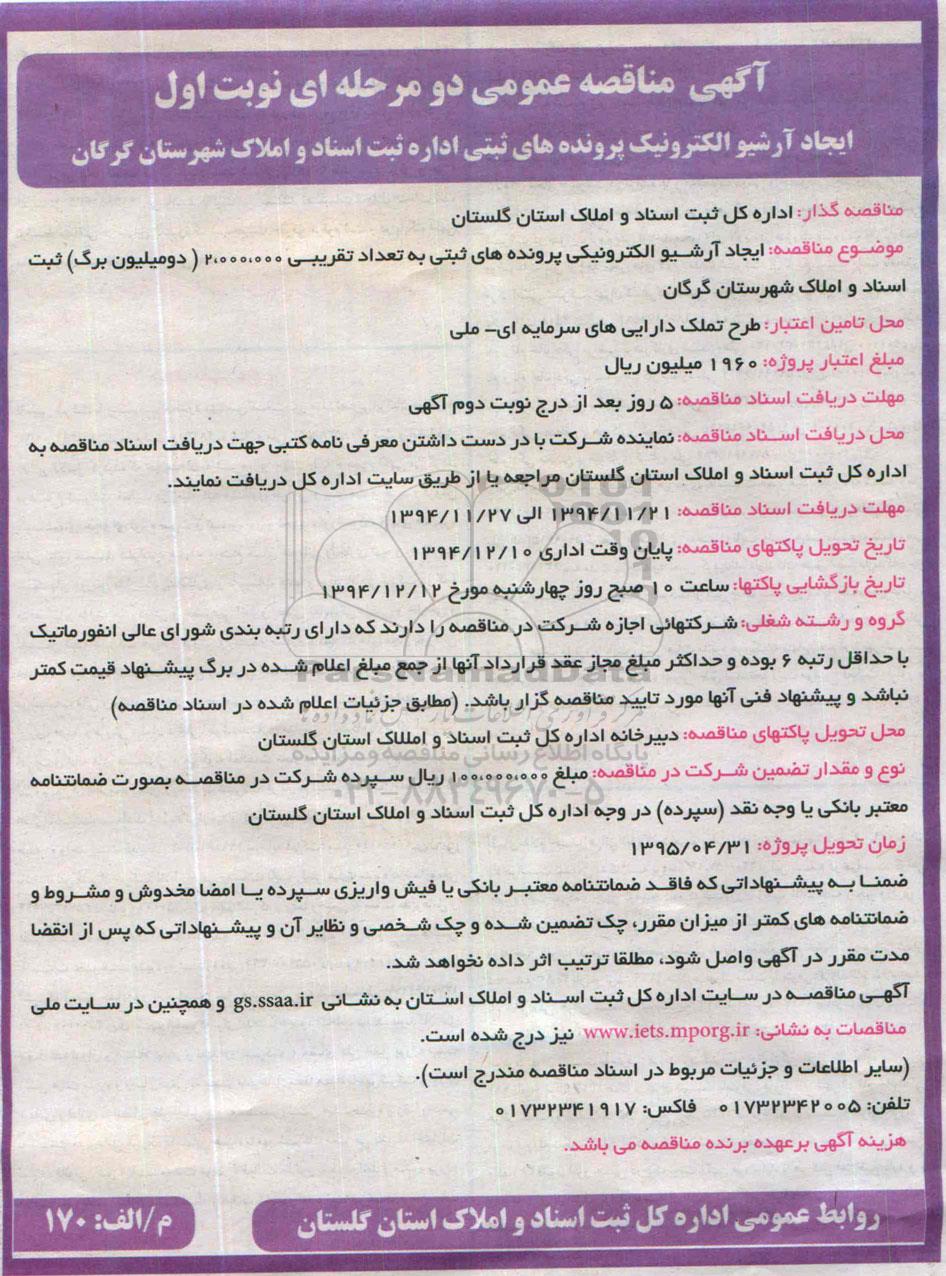 آگهی مناقصه عمومی دو مرحله ای نوبت اول
ایجاد آرشیو الکترونیک پرونده های ثبتی اداره ثبت اسناد و املاک شهرستان گرگان
مناقصه گذار: اداره کل ثبت اسناد و املاک استان گلستان
موضوع مناقصه: ایجاد آرشیو الکترونیکی پرونده های ثبتی به تعداد تقریبی ۲،۰۰۰،۰۰۰ ( دومیلیون برگ) ثبت
اسناد و املاک شهرستان گرگان
محل تامین اعتبار: طرح تملک دارایی های سرمایه ای- ملی
مبلغ اعتبار پروژه: ۱۹۶۰ میلیون ریال
مهلت دریافت اسناد مناقصه: ۵ روز بعد از درج نوبت دوم آگهی
محل دریافت اسناد مناقصه: نماینده شرکت با در دست داشتن معرفی نامه کتبی جهت دریافت اسناد مناقصه به
اداره کل ثبت اسناد و املاک استان گلستان مراجعه یا از طریق سایت اداره کل دریافت نمایند.
مهلت دریافت اسناد مناقصه: ۱۳۹۴/۱۱/۲۱ الی ۱۳۹۴/۱۱/۲۷
تاریخ تحویل پاکتهای مناقصه: پایان وقت اداری ۱۳۹۴/۱۲/۱۰
تاریخ بازگشایی پاکتها: ساعت ۱۰ صبح روز چهارشنبه مورخ ۱۳۹۴/۱۲/۱۲
گروه و رشته شغلی: شرکتهائی اجازه شرکت در مناقصه را دارند که دارای رتبه بندی شورای عالی انفورماتیک
با حداقل رتبه ۶ بوده و حداکثر مبلغ مجاز عقد قرارداد آنها از جمع مبلغ اعلام شده در برگ پیشنهاد قیمت کمتر
نباشد و پیشنهاد فنی آنها مورد تایید مناقصه گزار باشد. (مطابق جزئیات اعلام شده در اسناد مناقصه)
محل تحویل پاکتهای مناقصه: دبیرخانه اداره کل ثبت اسناد و امللاک استان گلستان
نوع و مقدار تضمین شرکت در مناقصه: مبلغ ۱۰۰،۰۰۰،۰۰۰ ریال سپرده شرکت در مناقصه بصورت ضمانتنامه
معتبر بانکی یا وجه نقد (سپرده) در وجه اداره کل ثبت اسناد و املاک استان گلستان
زمان تحویل پروژه: ۱۳۹۵/۰۴/۳۱
ضمنا به پیشنهاداتی که فاقد ضمانتنامه معتبر بانکی یا فیش واریزی سپرده یا امضا مخدوش و مشروط و
ضمانتنامه های کمتر از میزان مقرر، چک تضمین شده و چک شخصی و نظایر آن و پیشنهاداتی که پس از انقضا
مدت مقرر در آگهی واصل شود، مطلقا ترتیب اثر داده نخواهد شد.
آگهی مناقصه در سایت اداره کل ثبت اسناد و املاک استان به نشانی gs.ssaa.ir و همچنین در سایت ملی
مناقصات به نشانی: www.iets.mporg.ir نیز درج شده است.
(سایر اطلاعات و جزئیات مربوط در اسناد مناقصه مندرج است).
تلفن: ۰۱۷۳۲۳۴۲۰۰۵ فاکس: ۰۱۷۳۲۳۴۱۹۱۷
هزینه آگهی برعهده برنده مناقصه می باشد.
روابط عمومی اداره کل ثبت اسناد و املاک استان گلستان
م/الف: ۱۷۰
ParsNamadData
پایگاه اطلاع رسانی مناقصه و مزایده
۰۲۱-۸۸۳۴۹۶۷۰-۵